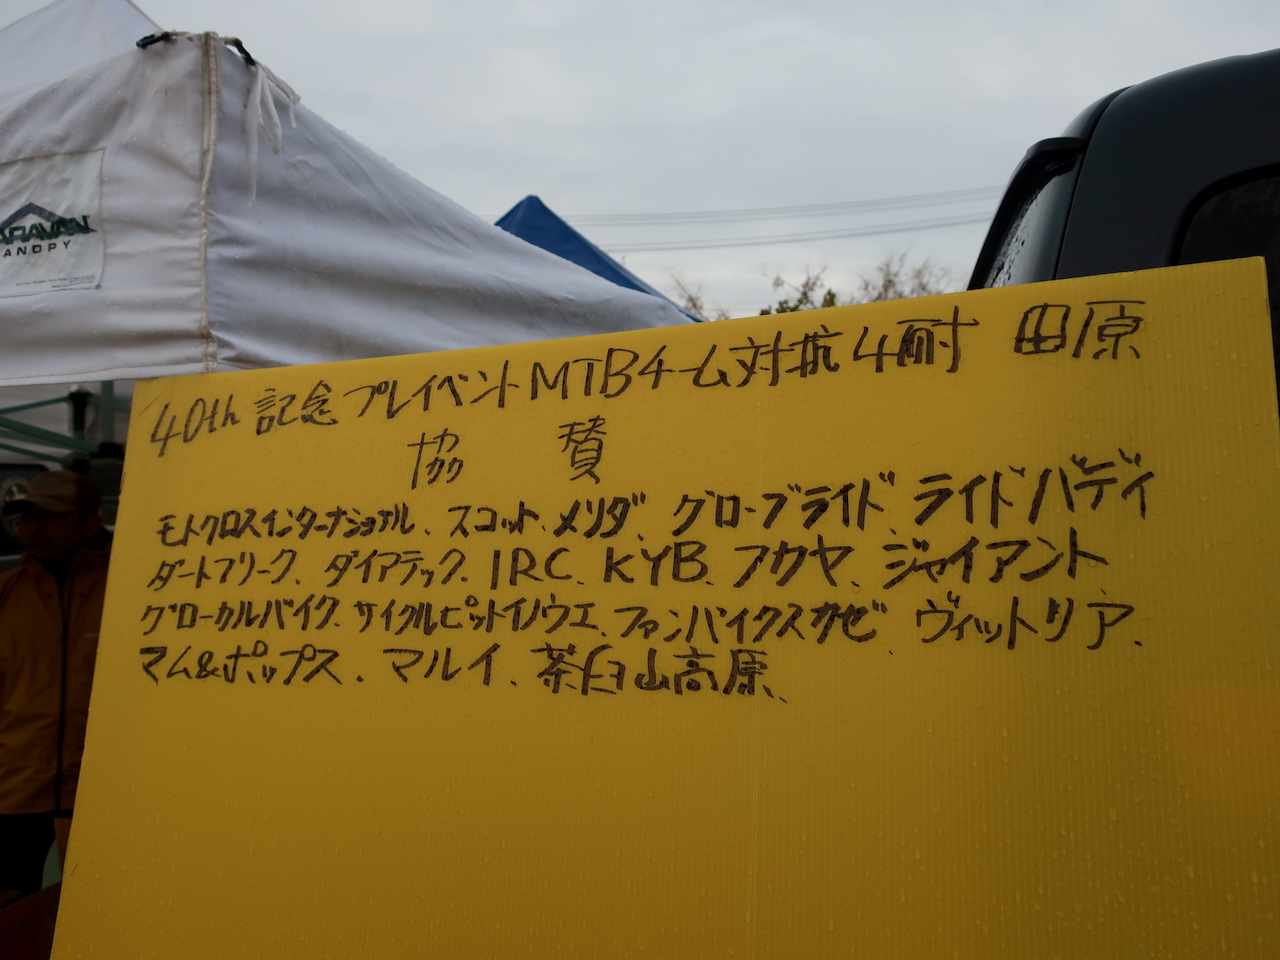 ARAVAN
ANOPY
40th 記念プレイベントMTBチーム対抗4耐 田原
協 賛
モトクロスインターナショナル、スコット、メリダ、グローブライド、ライドバディ
ダートフリーク、ダイアテック、IRC、KYB、フカヤ、ジャイアント
グローカルバイク、サイクルピットイノウエ、ファンバイクスカゼ、ヴィットリア、
マム&ポップス、マルイ、茶臼山高原、